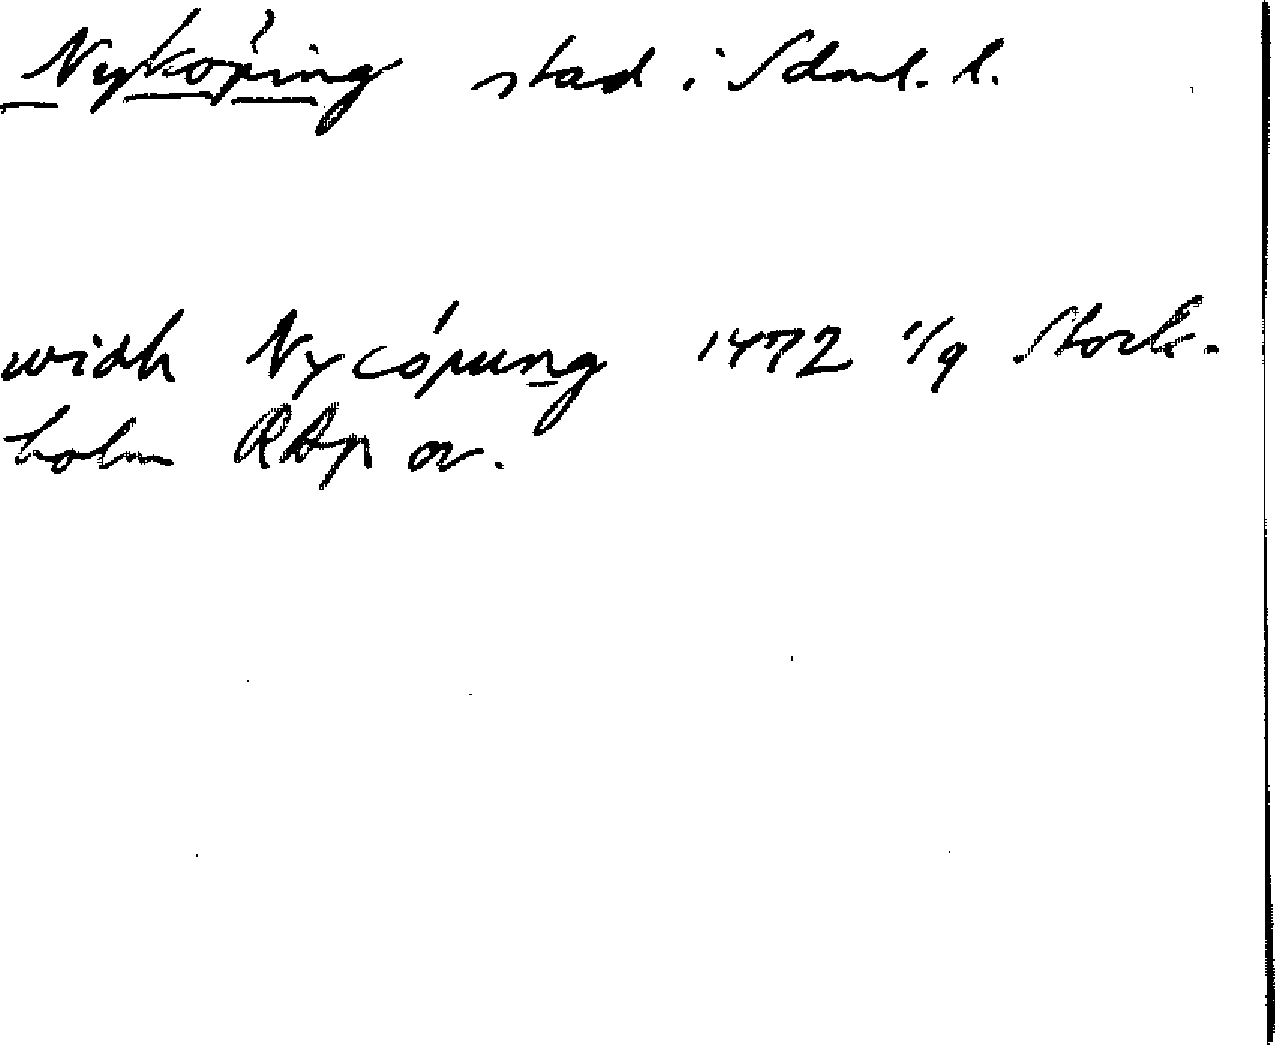 Nyköping stad i Sdml. l.
widh Nycópung 1472 1/9 Stock-
holm RAp or.